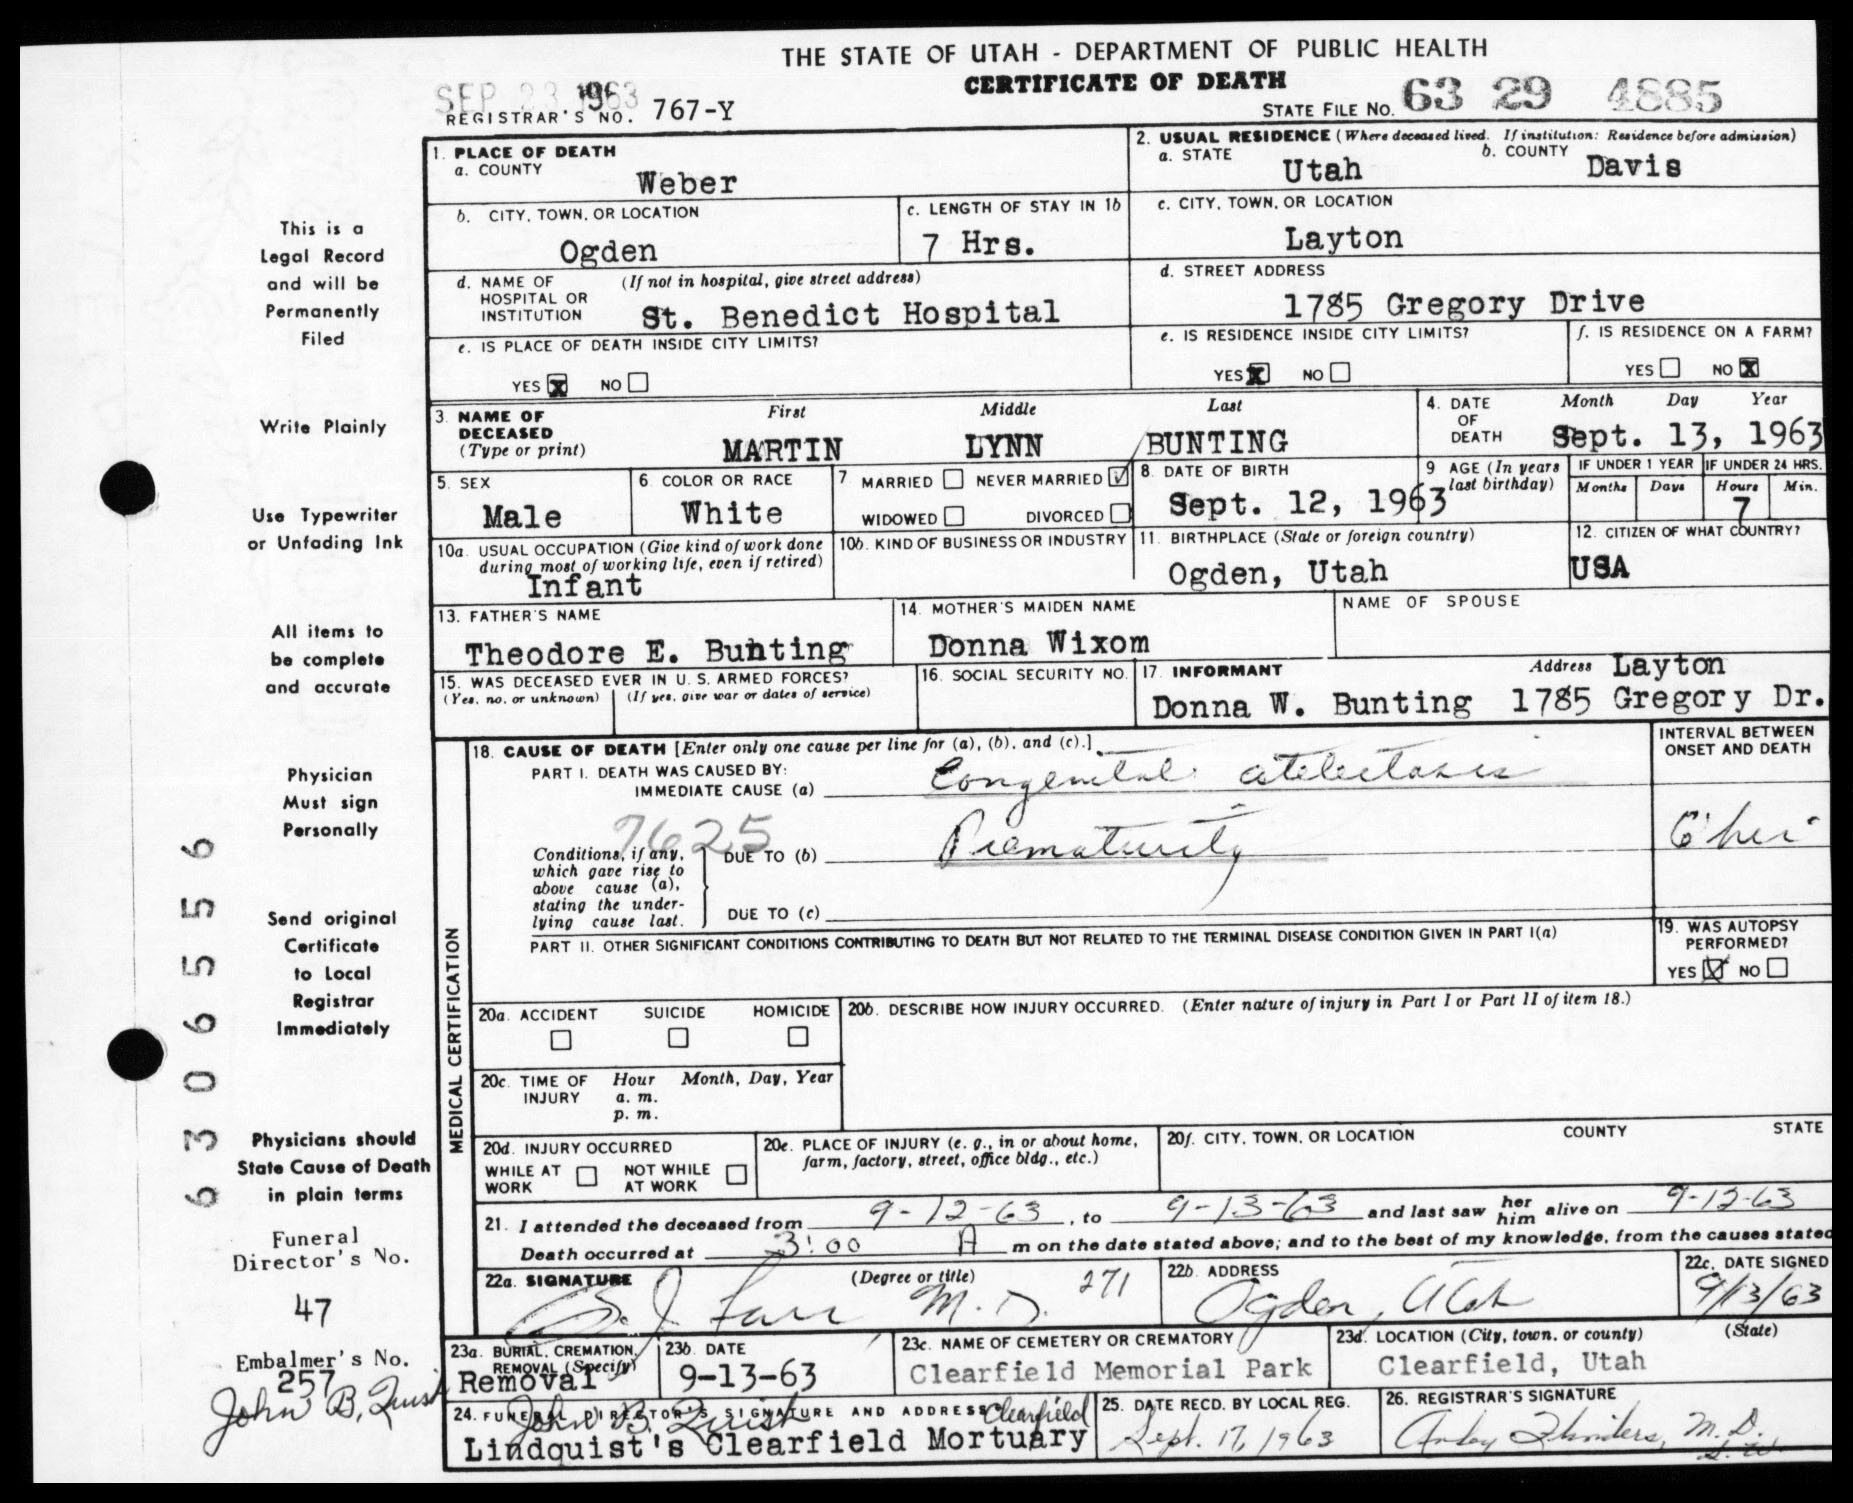 THE STATE OF UTAH - DEPARTMENT OF PUBLIC HEALTH
CERTIFICATE OF DEATH
SEP 23 1963
REGISTRAR'S NO. 767-Y
STATE FILE NO. 63 29 4885
1. PLACE OF DEATH
a. COUNTY
Weber
2. USUAL RESIDENCE (Where deceased lived. If institution: Residence before admission)
a. STATE Utah b. COUNTY Davis
b. CITY, TOWN, OR LOCATION
Ogden
c. LENGTH OF STAY IN 1b
7 Hrs.
c. CITY, TOWN, OR LOCATION
Layton
d. NAME OF HOSPITAL OR INSTITUTION (If not in hospital, give street address)
St. Benedict Hospital
d. STREET ADDRESS
1785 Gregory Drive
e. IS PLACE OF DEATH INSIDE CITY LIMITS?
YES X NO
e. IS RESIDENCE INSIDE CITY LIMITS?
YES X NO
f. IS RESIDENCE ON A FARM?
YES NO X
3. NAME OF DECEASED (Type or print)
First Middle Last
MARTIN LYNN BUNTING
4. DATE OF DEATH Month Day Year
Sept. 13, 1963
5. SEX
Male
6. COLOR OR RACE
White
7. MARRIED NEVER MARRIED ✓
WIDOWED DIVORCED
8. DATE OF BIRTH
Sept. 12, 1963
9 AGE (In years last birthday)
IF UNDER 1 YEAR IF UNDER 24 HRS.
Months Days Hours Min.
7
10a. USUAL OCCUPATION (Give kind of work done during most of working life, even if retired)
Infant
10b. KIND OF BUSINESS OR INDUSTRY
11. BIRTHPLACE (State or foreign country)
Ogden, Utah
12. CITIZEN OF WHAT COUNTRY?
USA
13. FATHER'S NAME
Theodore E. Bunting
14. MOTHER'S MAIDEN NAME
Donna Wixom
NAME OF SPOUSE
15. WAS DECEASED EVER IN U. S. ARMED FORCES?
(Yes, no, or unknown) (If yes, give war or dates of service)
16. SOCIAL SECURITY NO.
17. INFORMANT Address Layton
Donna W. Bunting 1785 Gregory Dr.
MEDICAL CERTIFICATION
18. CAUSE OF DEATH [Enter only one cause per line for (a), (b), and (c).]
INTERVAL BETWEEN ONSET AND DEATH
PART I. DEATH WAS CAUSED BY:
IMMEDIATE CAUSE (a) Congenital atelectasis
7625
Conditions, if any, which gave rise to above cause (a), stating the underlying cause last.
DUE TO (b) Prematurity
DUE TO (c)
PART II. OTHER SIGNIFICANT CONDITIONS CONTRIBUTING TO DEATH BUT NOT RELATED TO THE TERMINAL DISEASE CONDITION GIVEN IN PART I(a)
19. WAS AUTOPSY PERFORMED?
YES X NO
20a. ACCIDENT SUICIDE HOMICIDE
20b. DESCRIBE HOW INJURY OCCURRED. (Enter nature of injury in Part I or Part II of item 18.)
20c. TIME OF INJURY Hour Month, Day, Year
a. m.
p. m.
20d. INJURY OCCURRED
WHILE AT WORK NOT WHILE AT WORK
20e. PLACE OF INJURY (e. g., in or about home, farm, factory, street, office bldg., etc.)
20f. CITY, TOWN, OR LOCATION COUNTY STATE
21. I attended the deceased from 9-12-63, to 9-13-63 and last saw her him alive on 9-12-63
Death occurred at 3:00 A m on the date stated above; and to the best of my knowledge, from the causes stated
22a. SIGNATURE (Degree or title)
J Farr M.D. 271
22b. ADDRESS
Ogden, Utah
22c. DATE SIGNED
9/13/63
23a. BURIAL, CREMATION, REMOVAL (Specify)
Removal
23b. DATE
9-13-63
23c. NAME OF CEMETERY OR CREMATORY
Clearfield Memorial Park
23d. LOCATION (City, town, or county) (State)
Clearfield, Utah
24. FUNERAL DIRECTOR'S SIGNATURE AND ADDRESS
John B. Quist Clearfield
Lindquist's Clearfield Mortuary
25. DATE RECD. BY LOCAL REG.
Sept. 17, 1963
26. REGISTRAR'S SIGNATURE
M.D.
This is a
Legal Record
and will be
Permanently
Filed
Write Plainly
Use Typewriter
or Unfading Ink
All items to
be complete
and accurate
Physician
Must sign
Personally
Send original
Certificate
to Local
Registrar
Immediately
Physicians should
State Cause of Death
in plain terms
Funeral
Director's No.
47
Embalmer's No.
257
John B. Quist
63065556